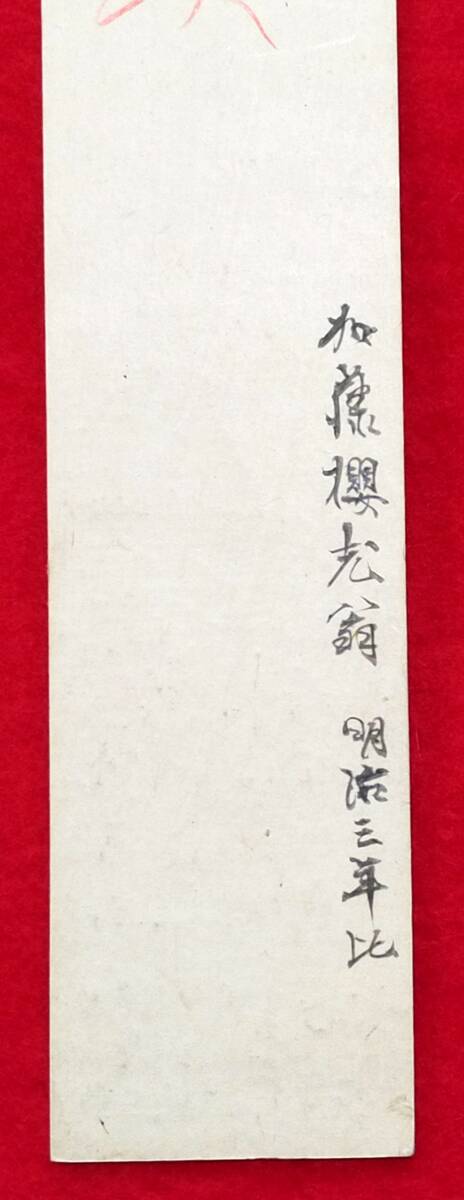 加藤櫻老翁 明治三年比